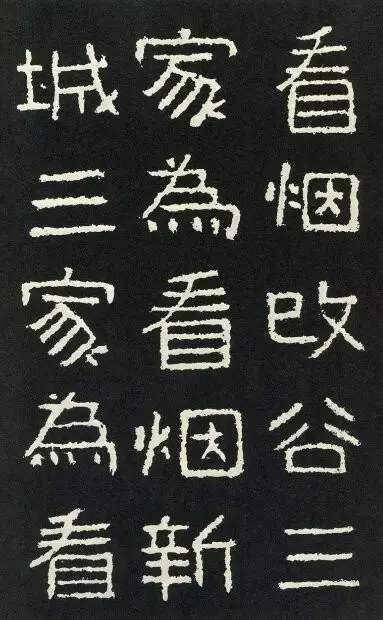 看烟改谷三
家為看烟新
城三家為看